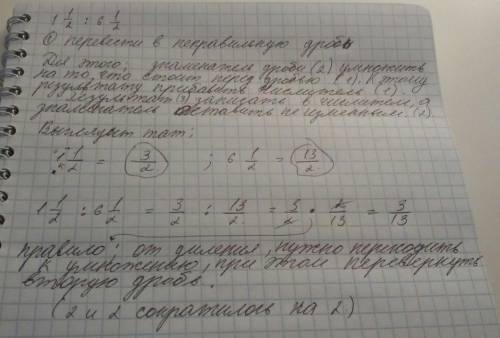 1 1/2 : 6 1/2
① перевести в неправильную дробь
Для этого: знаменатель дроби (2) умножить
на то, что стоит перед дробью (1). К этому
результату прибавить числитель (1).
Результат (3) записать в числитель, а
знаменатель оставить неизменным. (2)
Выглядит так:
1 1/2 = 3/2 ; 6 1/2 = 13/2
1 1/2 : 6 1/2 = 3/2 : 13/2 = 3/2 · 2/13 = 3/13
правило: от деления, нужно переходить
к умножению, при этом перевернуть
вторую дробь.
(2 и 2 сократилось на 2)